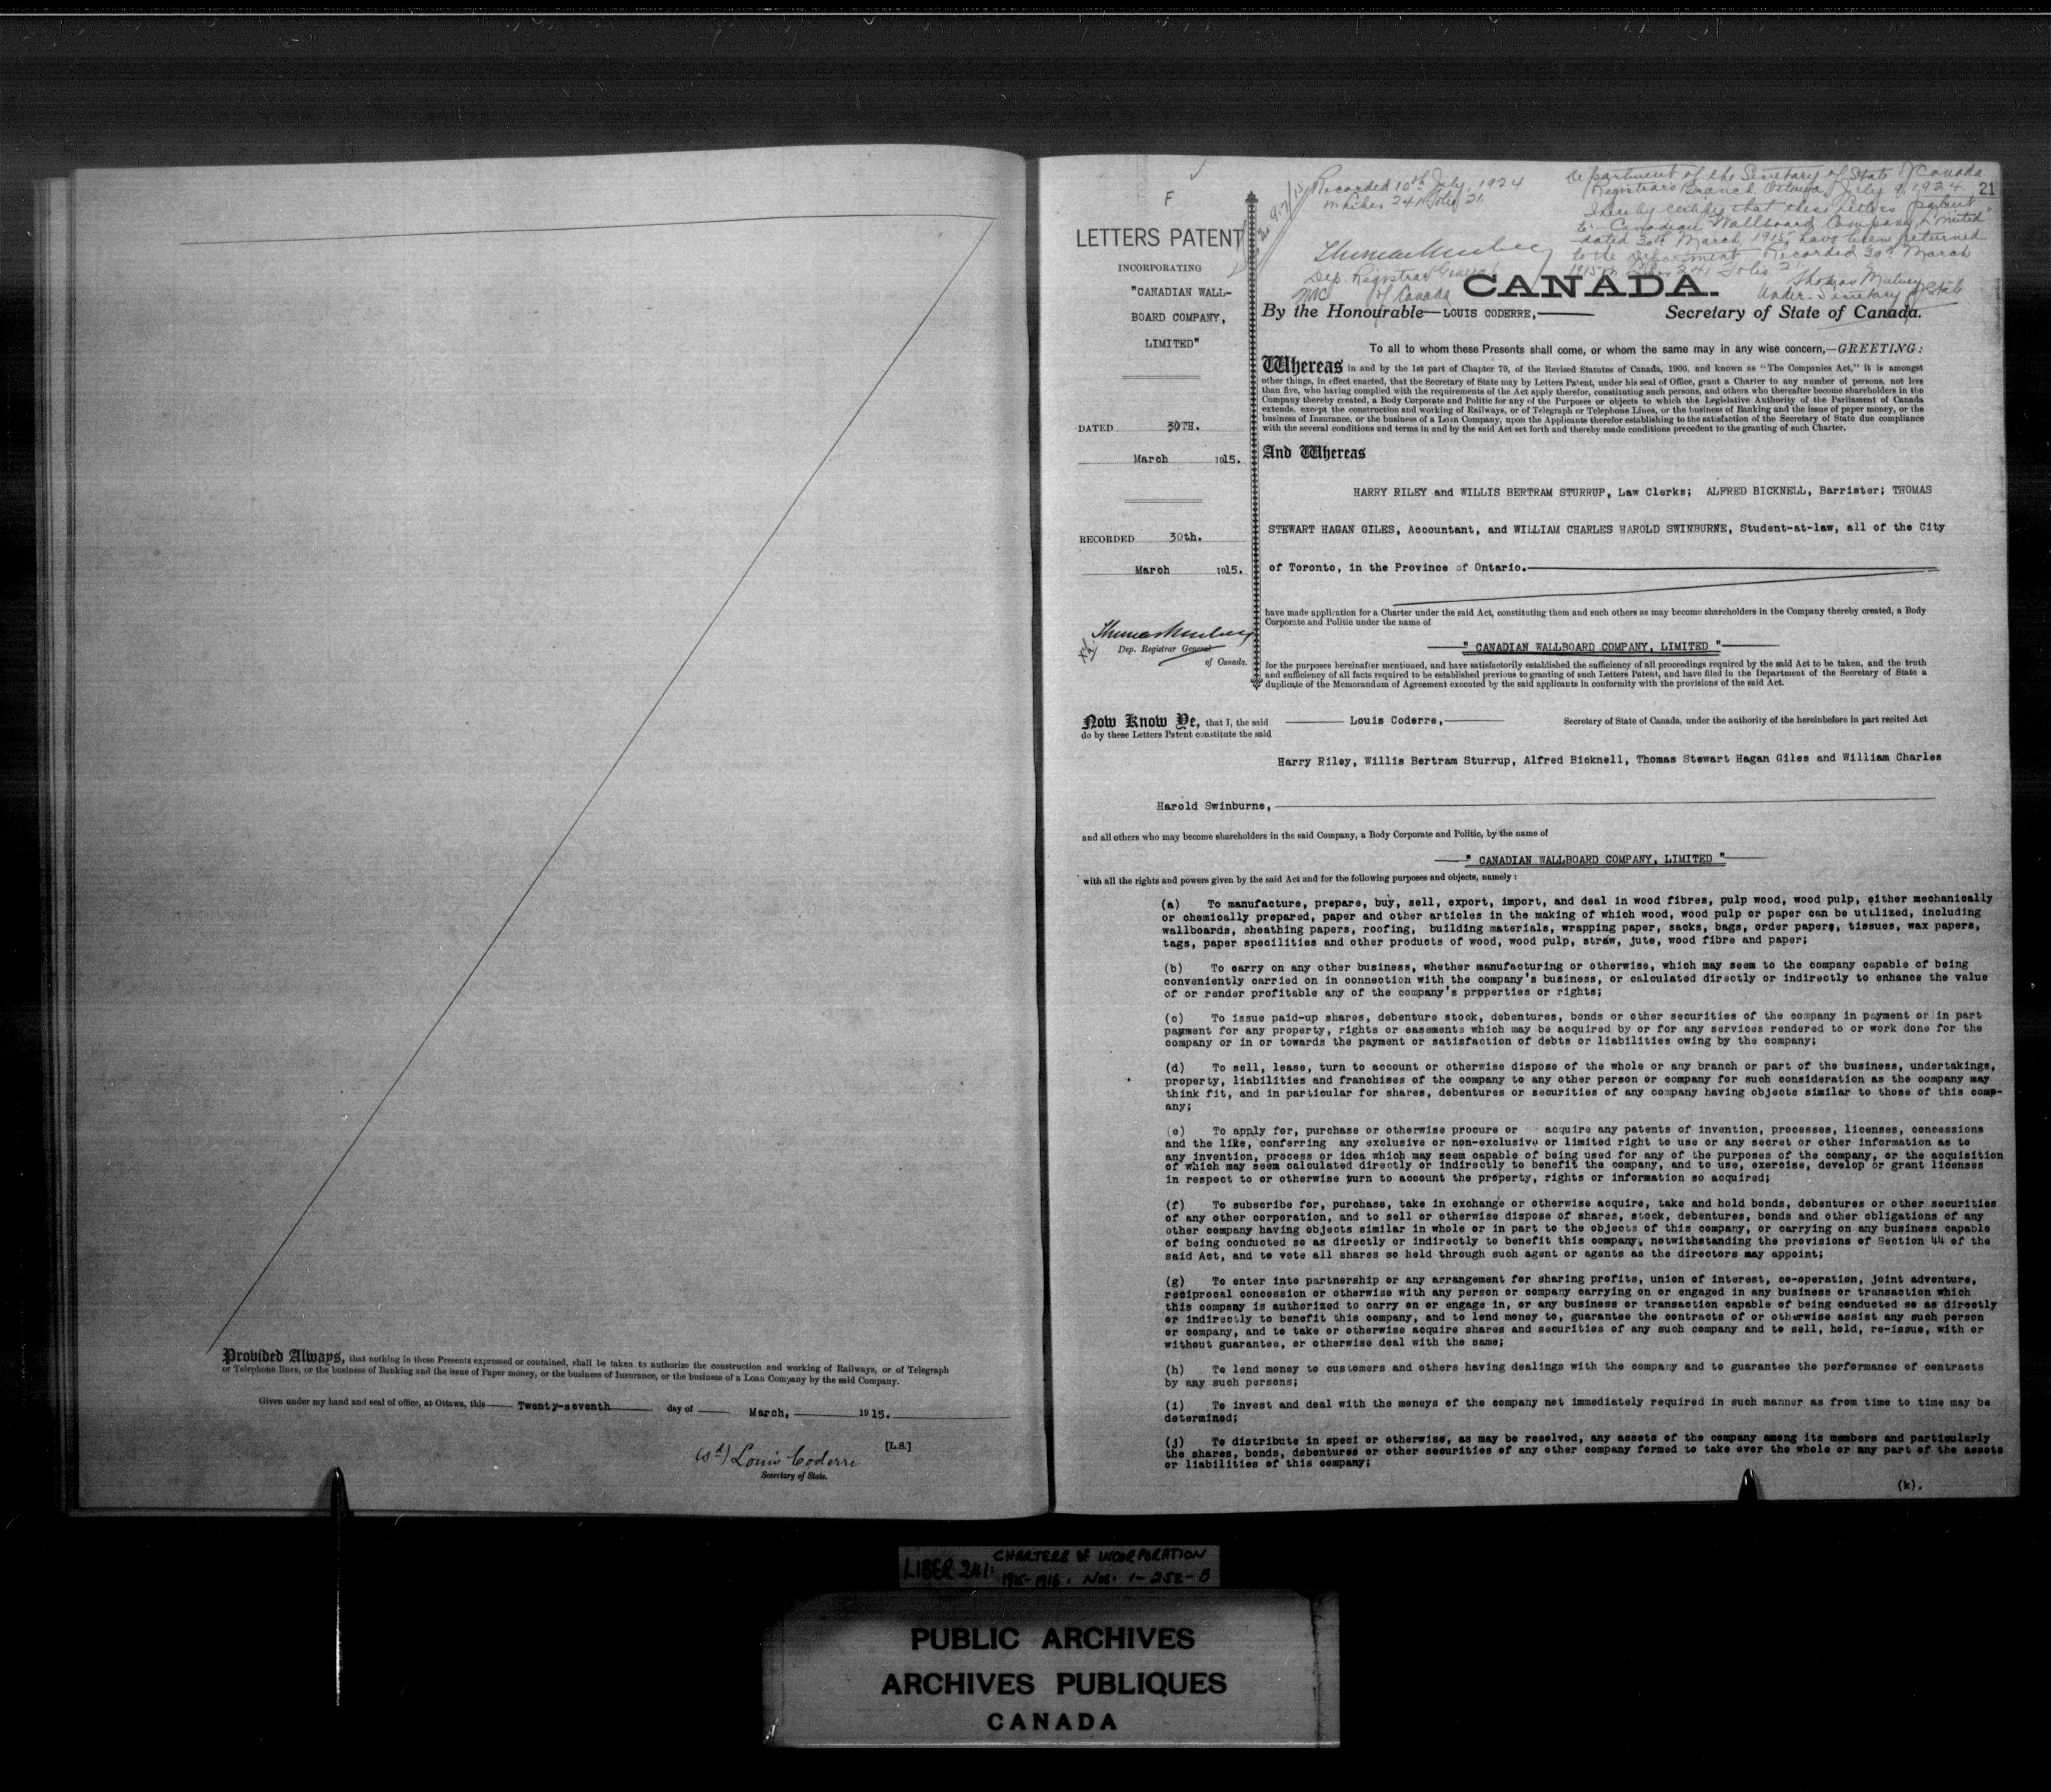 Provided Always, that nothing in these Presents expressed or contained, shall be taken to authorize the construction and working of Railways, or of Telegraph
or Telephone lines, or the business of Banking and the issue of Paper money, or the business of Insurance, or the business of a Loan Company by the said Company.
Given under my hand and seal of office, at Ottawa, this Twenty-seventh day of March, 1915.
[L.S.]
(sd) Louis Coderre
Secretary of State.
F
LETTERS PATENT
INCORPORATING
"CANADIAN WALL-
BOARD COMPANY,
LIMITED"
DATED 30TH.
March 1915.
RECORDED 30th.
March 1915.
Thomas Mulvey
Dep. Registrar General
of Canada.
Recorded 10th July, 1924
in Liber 241 Folio 21.
Thomas Mulvey
Dep. Registrar General
of Canada
Department of the Secretary of State of Canada
Registrar's Branch Ottawa July 9, 1924
21
I hereby certify that these Letters patent
to "Canadian Wallboard Company, Limited"
dated 30th March, 1915, have been returned
to the Department Recorded 30th March
1915 in Liber 241 Folio 21
Thomas Mulvey
Under-Secretary of State
CANADA.
By the Honourable LOUIS CODERRE, Secretary of State of Canada.
To all to whom these Presents shall come, or whom the same may in any wise concern,—GREETING:
Whereas in and by the 1st part of Chapter 79, of the Revised Statutes of Canada, 1906, and known as "The Companies Act," it is amongst
other things, in effect enacted, that the Secretary of State may by Letters Patent, under his seal of Office, grant a Charter to any number of persons, not less
than five, who having complied with the requirements of the Act apply therefor, constituting such persons, and others who thereafter become shareholders in the
Company thereby created, a Body Corporate and Politic for any of the Purposes or objects to which the Legislative Authority of the Parliament of Canada
extends, except the construction and working of Railways, or of Telegraph or Telephone Lines, or the business of Banking and the issue of paper money, or the
business of Insurance, or the business of a Loan Company, upon the Applicants therefor establishing to the satisfaction of the Secretary of State due compliance
with the several conditions and terms in and by the said Act set forth and thereby made conditions precedent to the granting of such Charter.
And Whereas
HARRY RILEY and WILLIS BERTRAM STURRUP, Law Clerks; ALFRED BICKNELL, Barrister; THOMAS
STEWART HAGAN GILES, Accountant, and WILLIAM CHARLES HAROLD SWINBURNE, Student-at-law, all of the City
of Toronto, in the Province of Ontario.
have made application for a Charter under the said Act, constituting them and such others as may become shareholders in the Company thereby created, a Body
Corporate and Politic under the name of
" CANADIAN WALLBOARD COMPANY, LIMITED "
for the purposes hereinafter mentioned, and have satisfactorily established the sufficiency of all proceedings required by the said Act to be taken, and the truth
and sufficiency of all facts required to be established previous to granting of such Letters Patent, and have filed in the Department of the Secretary of State a
duplicate of the Memorandum of Agreement executed by the said applicants in conformity with the provisions of the said Act.
Now Know Ye, that I, the said Louis Coderre, Secretary of State of Canada, under the authority of the hereinbefore in part recited Act
do by these Letters Patent constitute the said
Harry Riley, Willis Bertram Sturrup, Alfred Bicknell, Thomas Stewart Hagan Giles and William Charles
Harold Swinburne,
and all others who may become shareholders in the said Company, a Body Corporate and Politic, by the name of
" CANADIAN WALLBOARD COMPANY, LIMITED "
with all the rights and powers given by the said Act and for the following purposes and objects, namely :
(a) To manufacture, prepare, buy, sell, export, import, and deal in wood fibres, pulp wood, wood pulp, either mechanically
or chemically prepared, paper and other articles in the making of which wood, wood pulp or paper can be utilized, including
wallboards, sheathing papers, roofing, building materials, wrapping paper, sacks, bags, order papers, tissues, wax papers,
tags, paper specilities and other products of wood, wood pulp, straw, jute, wood fibre and paper;
(b) To carry on any other business, whether manufacturing or otherwise, which may seem to the company capable of being
conveniently carried on in connection with the company's business, or calculated directly or indirectly to enhance the value
of or render profitable any of the company's properties or rights;
(c) To issue paid-up shares, debenture stock, debentures, bonds or other securities of the company in payment or in part
payment for any property, rights or easements which may be acquired by or for any services rendered to or work done for the
company or in or towards the payment or satisfaction of debts or liabilities owing by the company;
(d) To sell, lease, turn to account or otherwise dispose of the whole or any branch or part of the business, undertakings,
property, liabilities and franchises of the company to any other person or company for such consideration as the company may
think fit, and in particular for shares, debentures or securities of any company having objects similar to those of this comp-
any;
(e) To apply for, purchase or otherwise procure or acquire any patents of invention, processes, licenses, concessions
and the like, conferring any exclusive or non-exclusive or limited right to use or any secret or other information as to
any invention, process or idea which may seem capable of being used for any of the purposes of the company, or the acquisition
of which may seem calculated directly or indirectly to benefit the company, and to use, exercise, develop or grant licenses
in respect to or otherwise turn to account the property, rights or information so acquired;
(f) To subscribe for, purchase, take in exchange or otherwise acquire, take and hold bonds, debentures or other securities
of any other corporation, and to sell or otherwise dispose of shares, stock, debentures, bonds and other obligations of any
other company having objects similar in whole or in part to the objects of this company, or carrying on any business capable
of being conducted so as directly or indirectly to benefit this company, notwithstanding the provisions of Section 44 of the
said Act, and to vote all shares so held through such agent or agents as the directors may appoint;
(g) To enter into partnership or any arrangement for sharing profits, union of interest, co-operation, joint adventure,
reciprocal concession or otherwise with any person or company carrying on or engaged in any business or transaction which
this company is authorized to carry on or engage in, or any business or transaction capable of being conducted so as directly
or indirectly to benefit this company, and to lend money to, guarantee the contracts of or otherwise assist any such person
or company, and to take or otherwise acquire shares and securities of any such company and to sell, hold, re-issue, with or
without guarantee, or otherwise deal with the same;
(h) To lend money to customers and others having dealings with the company and to guarantee the performance of contracts
by any such persons;
(i) To invest and deal with the moneys of the company not immediately required in such manner as from time to time may be
determined;
(j) To distribute in speci or otherwise, as may be resolved, any assets of the company among its members and particularly
the shares, bonds, debentures or other securities of any other company formed to take over the whole or any part of the assets
or liabilities of this company;
(k).
LIBER 241: CHARTERS OF INCORPORATION
1915-1916. Nos: 1-252-B
PUBLIC ARCHIVES
ARCHIVES PUBLIQUES
CANADA